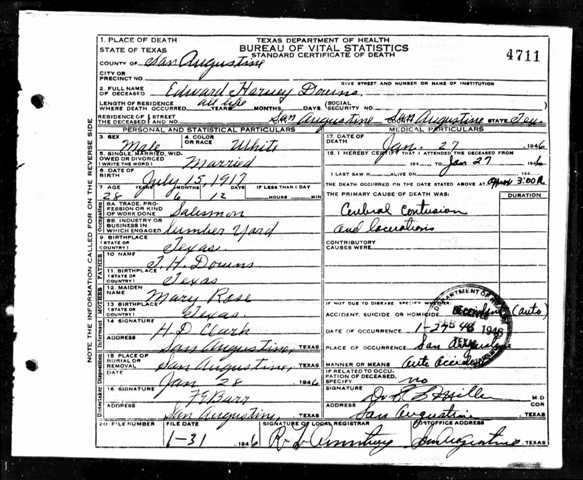 1. PLACE OF DEATH
STATE OF TEXAS
TEXAS DEPARTMENT OF HEALTH
BUREAU OF VITAL STATISTICS
STANDARD CERTIFICATE OF DEATH
4711
COUNTY OF San Augustine
CITY OR
PRECINCT NO.
GIVE STREET AND NUMBER OR NAME OF INSTITUTION
2. FULL NAME
OF DECEASED Edward Harvey Downs
LENGTH OF RESIDENCE
WHERE DEATH OCCURRED all life YEARS MONTHS DAYS (SOCIAL
SECURITY NO.
RESIDENCE OF THE DECEASED STREET AND NO. San Augustine San Augustine STATE Tex
PERSONAL AND STATISTICAL PARTICULARS
3. SEX Male 4. COLOR OR RACE White
5. SINGLE, MARRIED, WIDOWED OR DIVORCED (WRITE THE WORD) Married
6. DATE OF BIRTH July 15, 1917
7. AGE YEARS MONTHS DAYS IF LESS THAN 1 DAY
28 6 12 HOURS MIN
8A. TRADE, PROFESSION OR KIND OF WORK DONE Salesman
8B. INDUSTRY OR BUSINESS IN WHICH ENGAGED Lumber Yard
9. BIRTHPLACE (STATE OR COUNTRY) Texas
10. NAME T. H. Downs
11. BIRTHPLACE (STATE OR COUNTRY) Texas
12. MAIDEN NAME Mary Rose
13. BIRTHPLACE (STATE OR COUNTRY) Texas
14. SIGNATURE H D Clark
ADDRESS San Augustine, TEXAS
15. PLACE OF BURIAL OR REMOVAL San Augustine, TEXAS
DATE Jan 28 1946
16. SIGNATURE Barr
ADDRESS San Augustine, TEXAS
MEDICAL PARTICULARS
17. DATE OF DEATH Jan. 27 1946
18. I HEREBY CERTIFY THAT I ATTENDED THE DECEASED FROM
194 TO Jan 27 1946
I LAST SAW H ALIVE ON 194
THE DEATH OCCURRED ON THE DATE STATED ABOVE AT 3:00 P.M.
THE PRIMARY CAUSE OF DEATH WAS: DURATION
Cerebral contusion
and lacerations
CONTRIBUTORY CAUSES WERE:
IF NOT DUE TO DISEASE, SPECIFY
ACCIDENT, SUICIDE OR HOMICIDE (auto)
DATE OF OCCURRENCE 1946
PLACE OF OCCURRENCE San
MANNER OR MEANS Auto Accident
IF RELATED TO OCCUPATION OF DECEASED, SPECIFY no
SIGNATURE M.D
ADDRESS San Augustine TEXAS
20. FILE NUMBER FILE DATE 1-31 1946
SIGNATURE OF LOCAL REGISTRAR
POSTOFFICE ADDRESS San Augustine TEXAS
NOTE THE INFORMATION CALLED FOR ON THE REVERSE SIDE